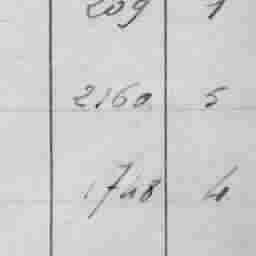 209 1
2160 5
1748 4